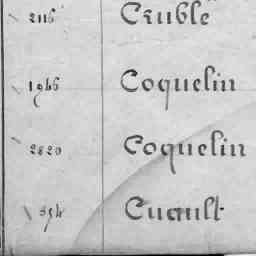 2116 Cruble
1946 Coquelin
2820 Coquelin
354 Cuault